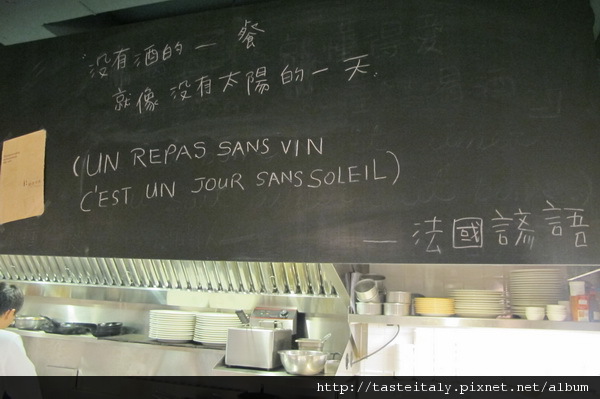 没有酒的一餐
就像没有太陽的一天.
(UN REPAS SANS VIN
C'EST UN JOUR SANS SOLEIL)
— 法國諺語
http://tasteitaly.pixnet.net/album